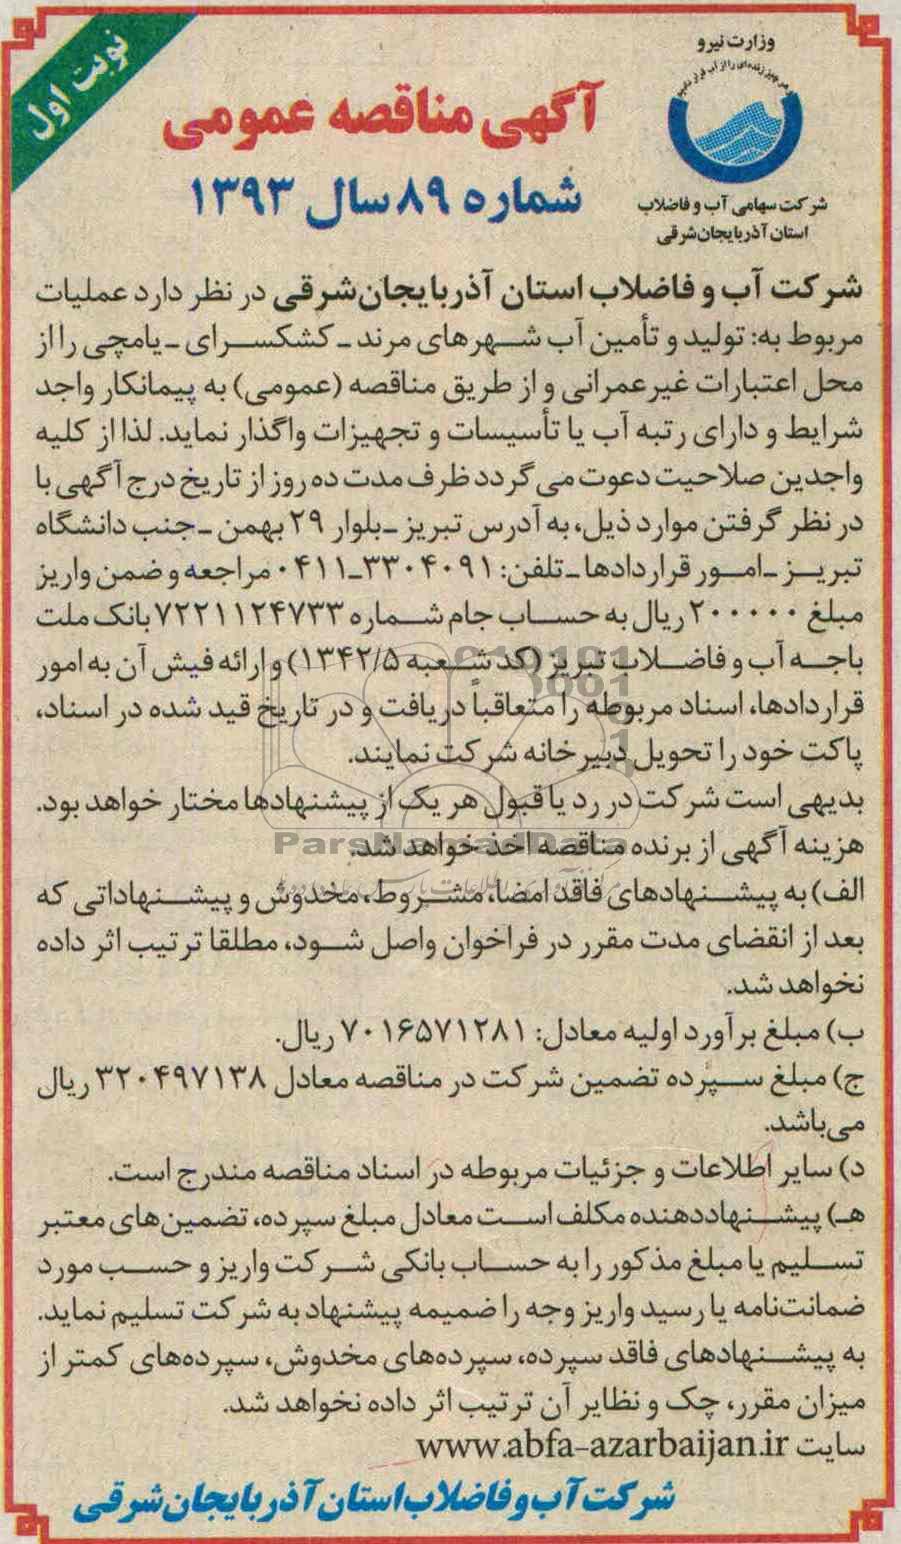 نوبت اول
وزارت نیرو
آگهی مناقصه عمومی
شماره ۸۹ سال ۱۳۹۳
شرکت سهامی آب و فاضلاب
استان آذربایجان‌شرقی
شرکت آب و فاضلاب استان آذربایجان‌شرقی در نظر دارد عملیات
مربوط به: تولید و تأمین آب شهرهای مرند ـ کشکسرای ـ یامچی را از
محل اعتبارات غیرعمرانی و از طریق مناقصه (عمومی) به پیمانکار واجد
شرایط و دارای رتبه آب یا تأسیسات و تجهیزات واگذار نماید. لذا از کلیه
واجدین صلاحیت دعوت می گردد ظرف مدت ده روز از تاریخ درج آگهی با
در نظر گرفتن موارد ذیل، به آدرس تبریز ـ بلوار ۲۹ بهمن ـ جنب دانشگاه
تبریز ـ امور قراردادها ـ تلفن: ۳۳۰۴۰۹۱-۰۴۱۱ مراجعه و ضمن واریز
مبلغ ۲۰۰۰۰۰ ریال به حساب جام شماره ۷۲۲۱۱۲۴۷۳۳ بانک ملت
باجه آب و فاضلاب تبریز (کد شعبه ۱۳۴۲/۵) و ارائه فیش آن به امور
قراردادها، اسناد مربوطه را متعاقباً دریافت و در تاریخ قید شده در اسناد،
پاکت خود را تحویل دبیرخانه شرکت نمایند.
بدیهی است شرکت در رد یا قبول هر یک از پیشنهادها مختار خواهد بود.
هزینه آگهی از برنده مناقصه اخذ خواهد شد.
ParsNamadData
الف) به پیشنهادهای فاقد امضا، مشروط، مخدوش و پیشنهاداتی که
بعد از انقضای مدت مقرر در فراخوان واصل شود، مطلقا ترتیب اثر داده
نخواهد شد.
ب) مبلغ برآورد اولیه معادل: ۷۰۱۶۵۷۱۲۸۱ ریال.
ج) مبلغ سپرده تضمین شرکت در مناقصه معادل ۳۲۰۴۹۷۱۳۸ ریال
می‌باشد.
د) سایر اطلاعات و جزئیات مربوطه در اسناد مناقصه مندرج است.
هـ) پیشنهاددهنده مکلف است معادل مبلغ سپرده، تضمین‌های معتبر
تسلیم یا مبلغ مذکور را به حساب بانکی شرکت واریز و حسب مورد
ضمانت‌نامه یا رسید واریز وجه را ضمیمه پیشنهاد به شرکت تسلیم نماید.
به پیشنهادهای فاقد سپرده، سپرده‌های مخدوش، سپرده‌های کمتر از
میزان مقرر، چک و نظایر آن ترتیب اثر داده نخواهد شد.
سایت www.abfa-azarbaijan.ir
شرکت آب و فاضلاب استان آذربایجان شرقی